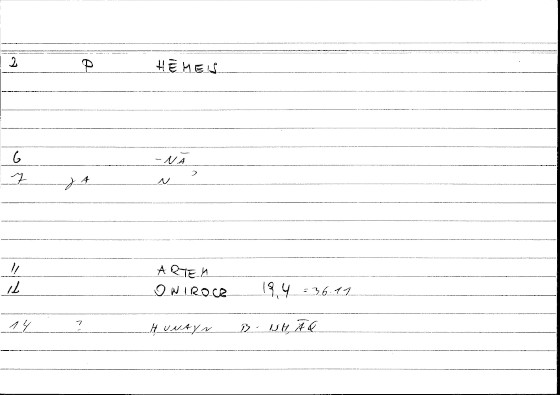 2 P HĒMEIS
6 -NĀ
7 jA N ʾ
11 ARTEM
12 ONIROCR 19,4 = 36.11
14 ? HUNAYN B-